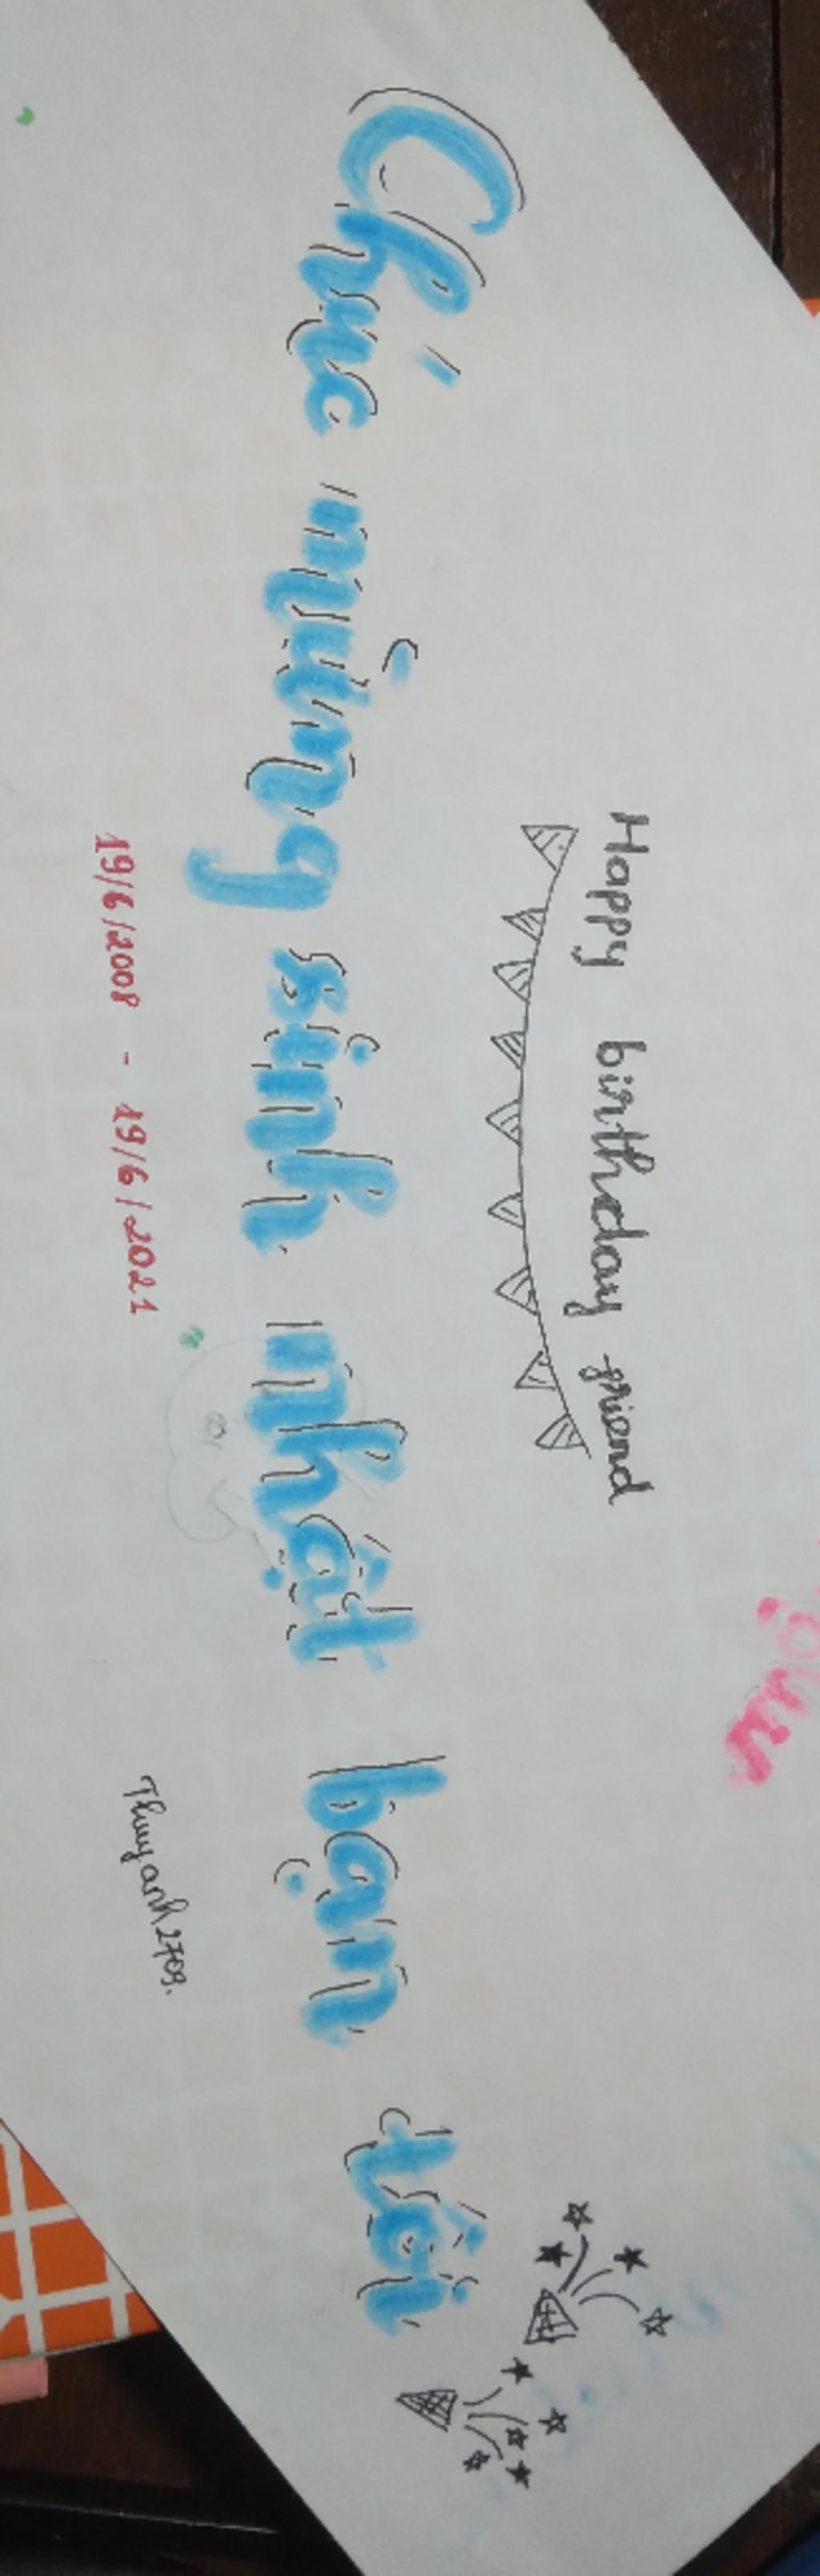 Happy birthday friend
Chúc mừng sinh nhật bạn tôi
19/6/2008 - 19/6/2021
Thuyanh2709.